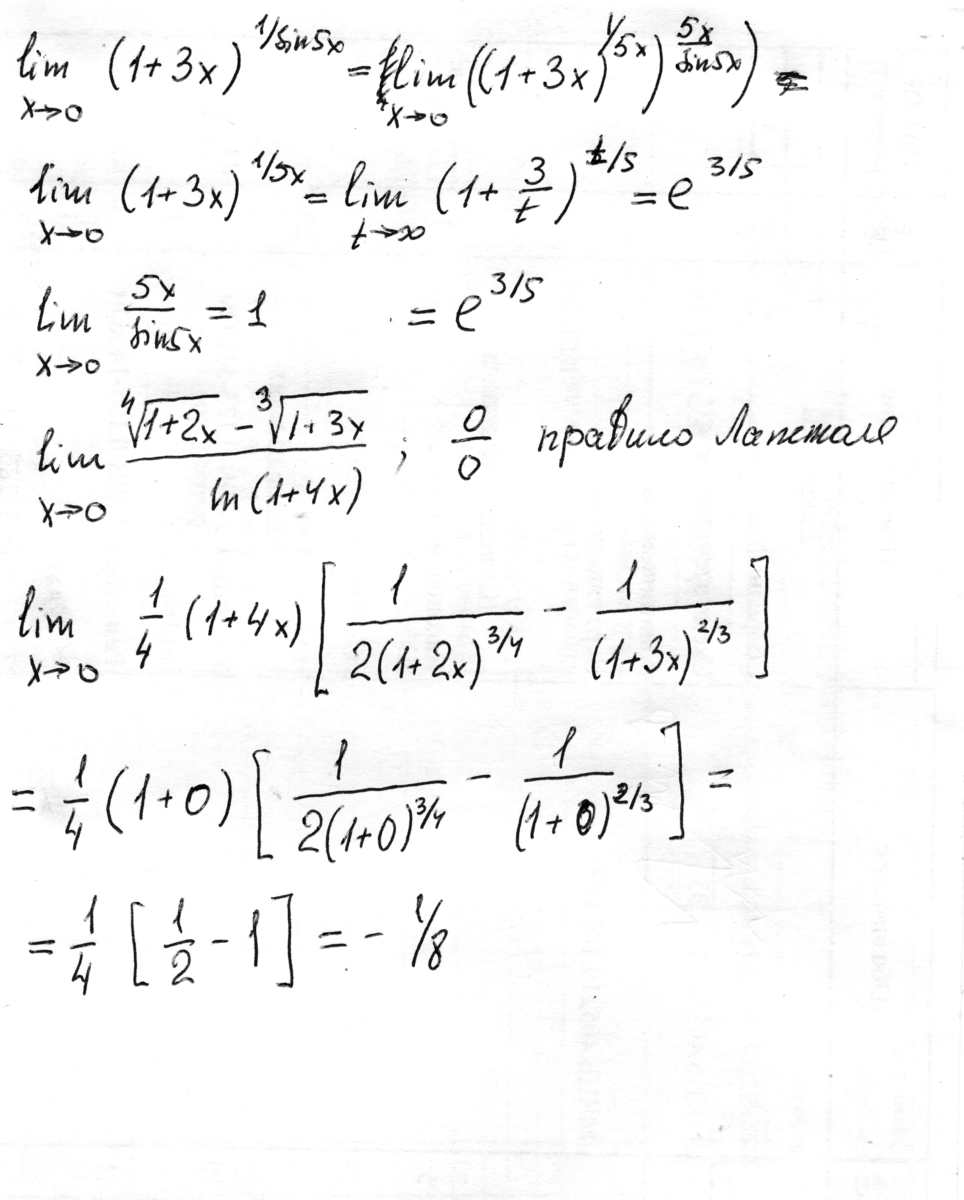 lim x→0 (1+3x)^{1/sin5x} = lim x→0 ((1+3x)^{1/5x})^{5x/sin5x}) =
lim x→0 (1+3x)^{1/5x} = lim t→∞ (1+ 3/t)^{t/5} = e^{3/5}
lim x→0 5x/sin5x = 1 = e^{3/5}
lim x→0 (∜(1+2x) - ∛(1+3x))/ln(1+4x) ; 0/0 правило Лапеталя
lim x→0 1/4 (1+4x) [ 1/(2(1+2x)^{3/4}) - 1/((1+3x)^{2/3}) ]
= 1/4 (1+0) [ 1/(2(1+0)^{3/4}) - 1/((1+0)^{2/3}) ] =
= 1/4 [ 1/2 - 1 ] = - 1/8